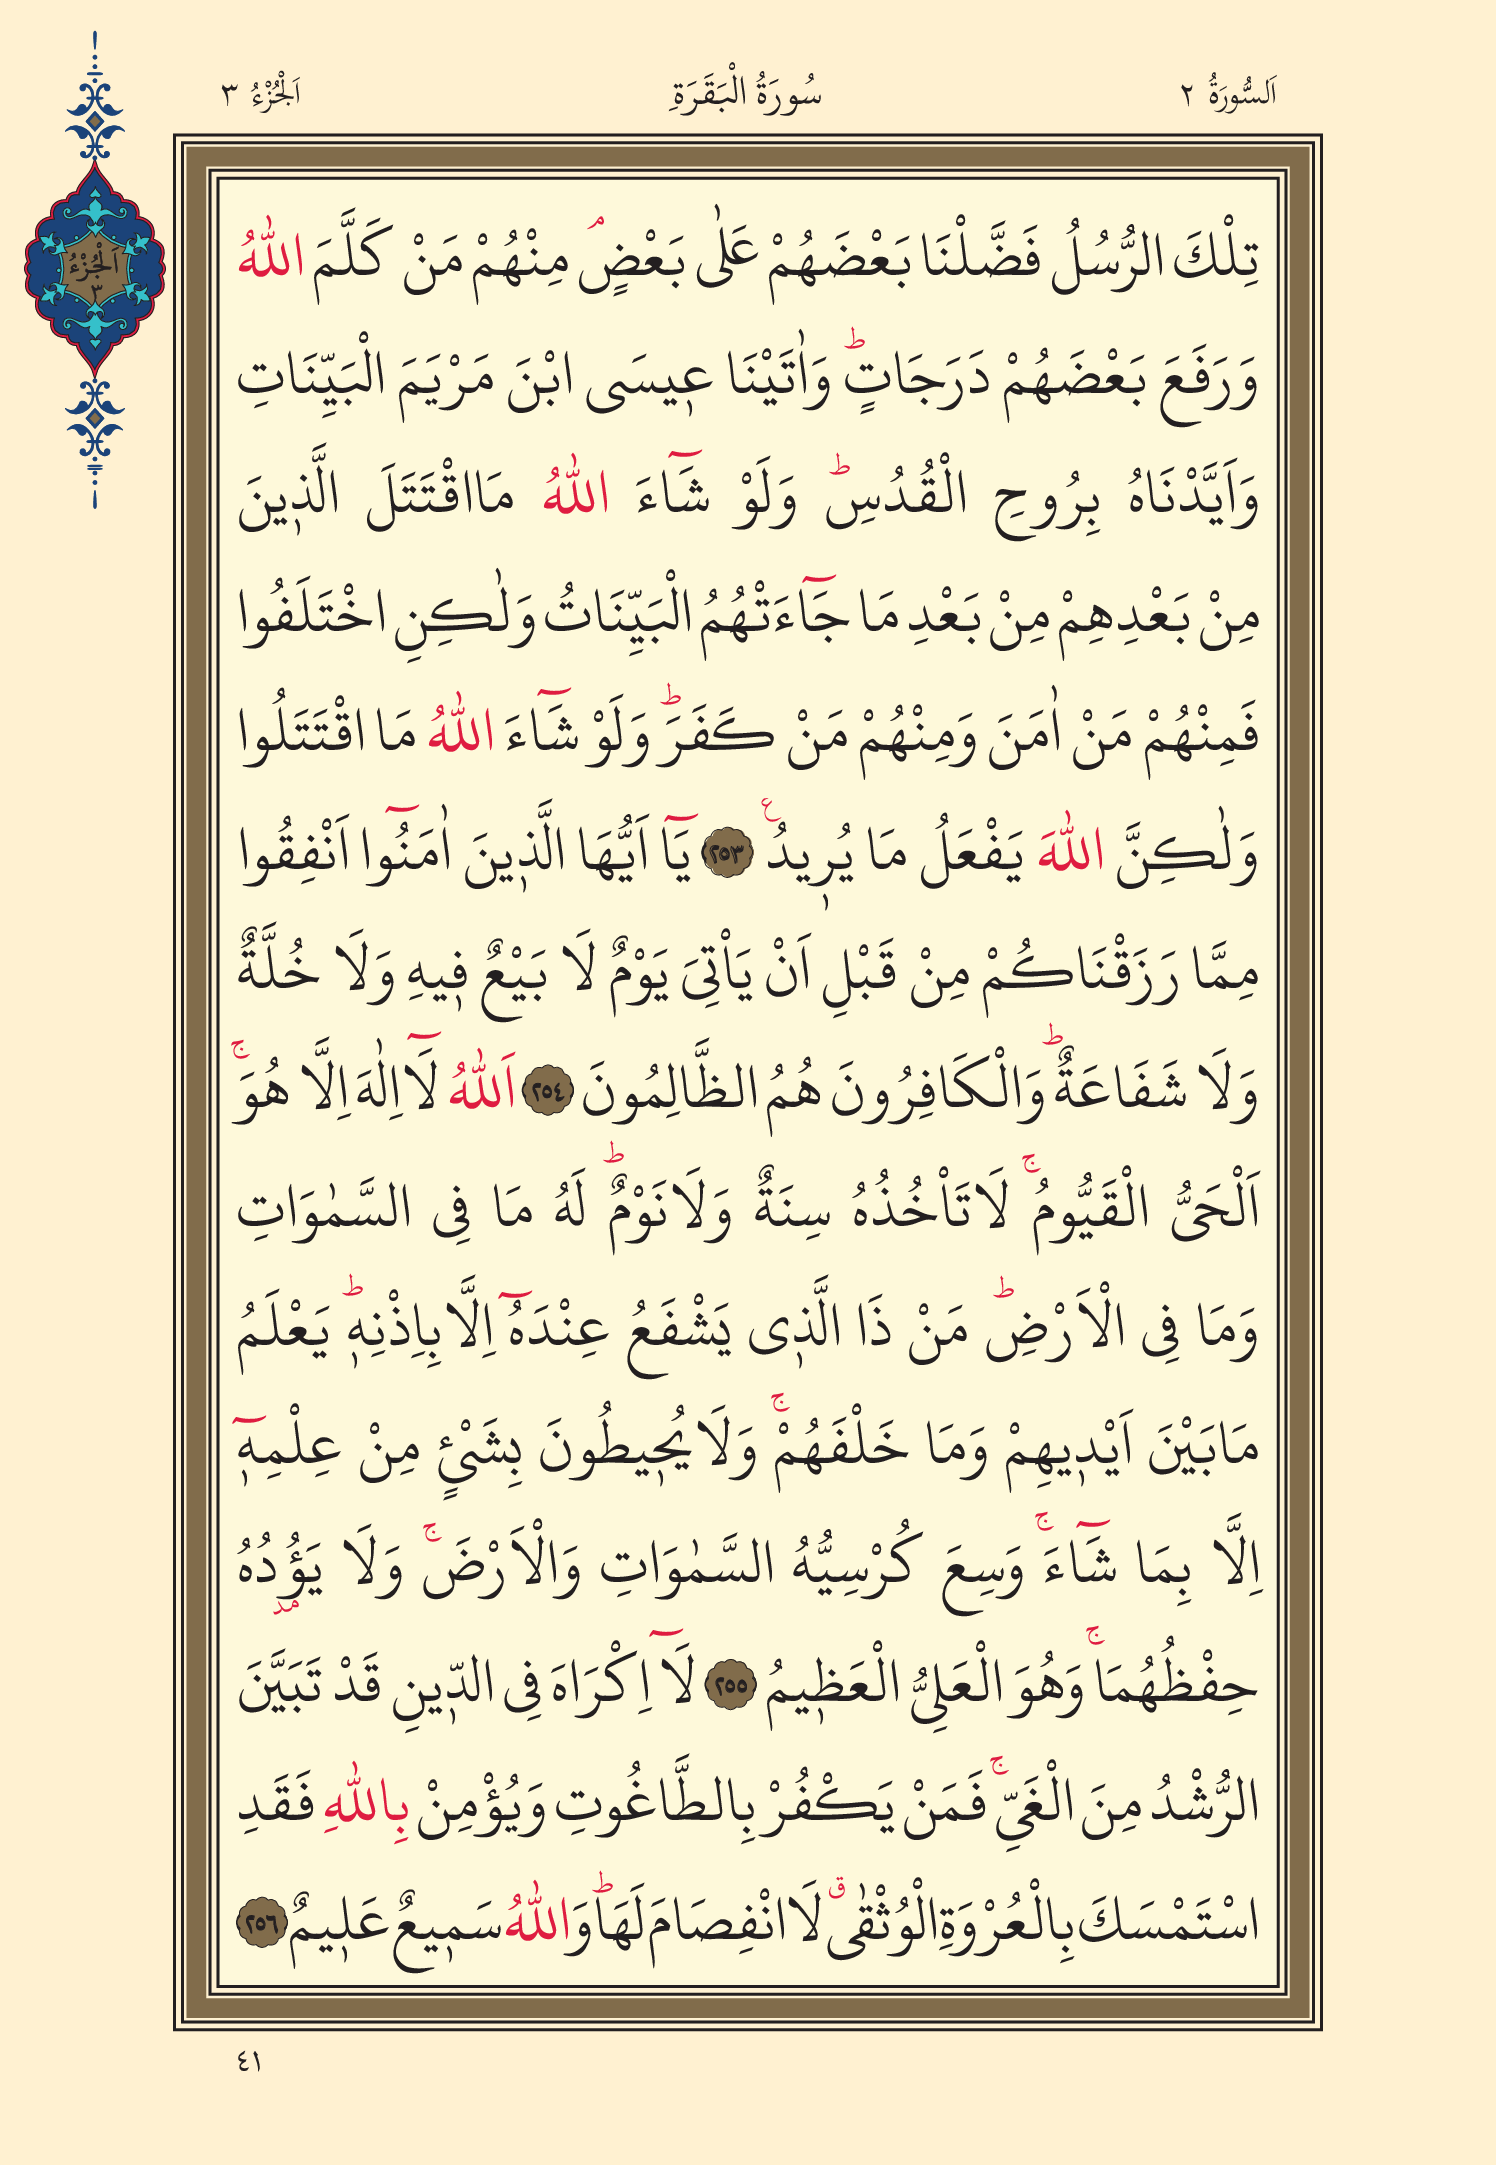 اَلسُّورَةُ ٢
سُورَةُ الْبَقَرَةِ
اَلْجُزْءُ ٣
اَلْجُزْءُ
٣
تِلْكَ الرُّسُلُ فَضَّلْنَا بَعْضَهُمْ عَلٰى بَعْضٍۢ مِنْهُمْ مَنْ كَلَّمَ اللّٰهُ
وَرَفَعَ بَعْضَهُمْ دَرَجَاتٍۜ وَاٰتَيْنَا عٖيسَى ابْنَ مَرْيَمَ الْبَيِّنَاتِ
وَاَيَّدْنَاهُ بِرُوحِ الْقُدُسِۜ وَلَوْ شَٓاءَ اللّٰهُ مَااقْتَتَلَ الَّذٖينَ
مِنْ بَعْدِهِمْ مِنْ بَعْدِ مَا جَٓاءَتْهُمُ الْبَيِّنَاتُ وَلٰكِنِ اخْتَلَفُوا
فَمِنْهُمْ مَنْ اٰمَنَ وَمِنْهُمْ مَنْ كَفَرَۜ وَلَوْ شَٓاءَ اللّٰهُ مَا اقْتَتَلُوا
وَلٰكِنَّ اللّٰهَ يَفْعَلُ مَا يُرٖيدُ ع ٢٥٣ يَٓا اَيُّهَا الَّذٖينَ اٰمَنُٓوا اَنْفِقُوا
مِمَّا رَزَقْنَاكُمْ مِنْ قَبْلِ اَنْ يَاْتِىَ يَوْمٌ لَا بَيْعٌ فٖيهِ وَلَا خُلَّةٌ
وَلَا شَفَاعَةٌۜ وَالْكَافِرُونَ هُمُ الظَّالِمُونَ ٢٥٤ اَللّٰهُ لَٓا اِلٰهَ اِلَّا هُوَۚ
اَلْحَىُّ الْقَيُّومُۚ لَا تَاْخُذُهُ سِنَةٌ وَلَا نَوْمٌۜ لَهُ مَا فِى السَّمٰوَاتِ
وَمَا فِى الْاَرْضِۜ مَنْ ذَا الَّذٖى يَشْفَعُ عِنْدَهُٓ اِلَّا بِاِذْنِهٖۜ يَعْلَمُ
مَابَيْنَ اَيْدٖيهِمْ وَمَا خَلْفَهُمْۚ وَلَا يُحٖيطُونَ بِشَىْءٍ مِنْ عِلْمِهٖٓ
اِلَّا بِمَا شَٓاءَۚ وَسِعَ كُرْسِيُّهُ السَّمٰوَاتِ وَالْاَرْضَۚ وَلَا يَؤُ۫دُهُ
حِفْظُهُمَاۚ وَهُوَ الْعَلِىُّ الْعَظٖيمُ ٢٥٥ لَٓا اِكْرَاهَ فِى الدّٖينِ قَدْ تَبَيَّنَ
الرُّشْدُ مِنَ الْغَىِّۚ فَمَنْ يَكْفُرْ بِالطَّاغُوتِ وَيُؤْمِنْ بِاللّٰهِ فَقَدِ
اسْتَمْسَكَ بِالْعُرْوَةِ الْوُثْقٰىۗ لَا انْفِصَامَ لَهَاۜ وَاللّٰهُ سَمٖيعٌ عَلٖيمٌ ٢٥٦
٤١